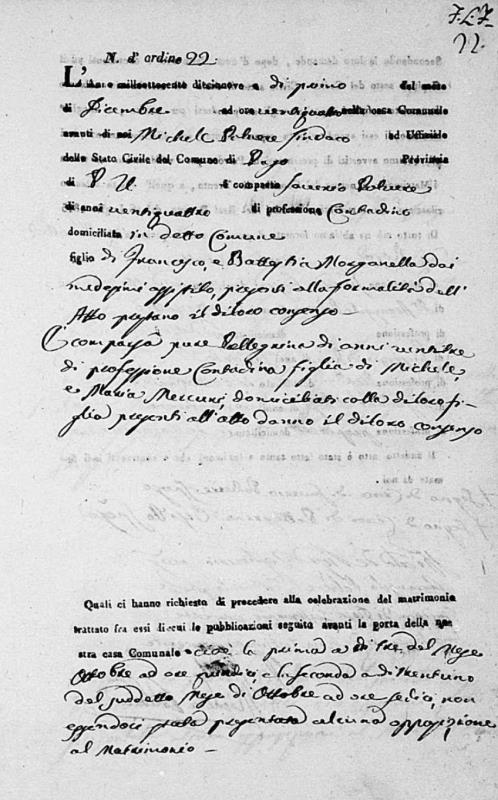 22.
N. d' ordine 22
L'Anno millesettecento diecinove a di primo del mese
di Dicembre ad ore ventiquattro nella casa Comunale
avanti di noi Michele Sindaco ed Uffiziale
dello Stato Civile del Comune di Pago Provincia
di P. U. è comparso Saverio
di anni ventiquattro di professione Contadino
domiciliato in detto Comune
figlio di Francesco, e Battestia Morganella dai
medesimi assistito, presenti alla formalità dell'
Atto prestano il diloro consenso
E comparsa pure Pellegrina di anni ventitre
di professione Contadina figlia di Michele,
e Maria Mercuri, domiciliati colla diloro fi-
glia presenti all'atto danno il diloro consenso
Quali ci hanno richiesto di procedere alla celebrazione del matrimonio
trattato fra essi di cui le pubblicazioni seguite avanti la porta della no
stra casa Comunale cioè la prima a di tre del Mese
Ottobre ad ore quindici, e la seconda a di trentuno
del suddetto Mese di Ottobre ad ore sedici, non
essendoci stata presentata alcuna opposizione
al Matrimonio